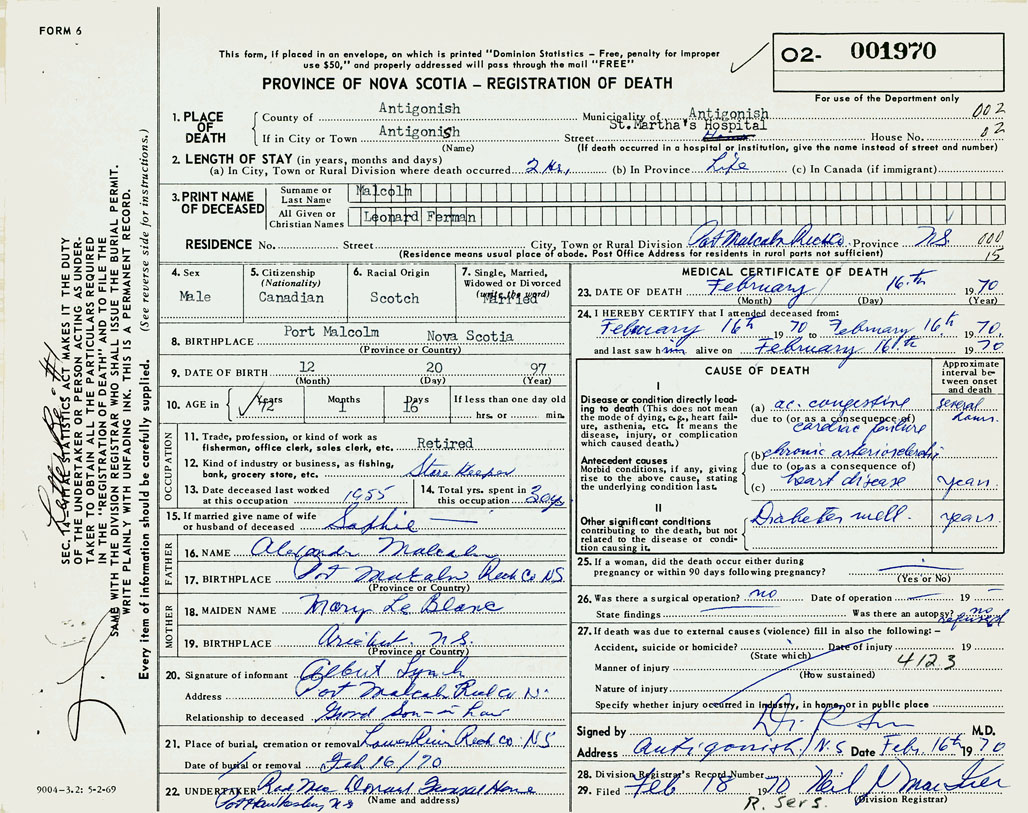 FORM 6
This form, if placed in an envelope, on which is printed "Dominion Statistics – Free, penalty for improper
use $50," and properly addressed will pass through the mail "FREE"
PROVINCE OF NOVA SCOTIA – REGISTRATION OF DEATH
O2- 001970
For use of the Department only
002
02
1. PLACE OF DEATH
County of Antigonish Municipality of Antigonish
If in City or Town Antigonish Street St.Martha's Hospital House No.
(Name) (If death occurred in a hospital or institution, give the name instead of street and number)
2. LENGTH OF STAY (in years, months and days)
(a) In City, Town or Rural Division where death occurred 2 Hrs, (b) In Province Life (c) In Canada (if immigrant)
3. PRINT NAME OF DECEASED
Surname or Last Name Malcolm
All Given or Christian Names Leonard Ferman
RESIDENCE No. Street City, Town or Rural Division Port Malcolm Rich Co Province N.S. 000
(Residence means usual place of abode. Post Office Address for residents in rural parts not sufficient) 15
4. Sex
Male
5. Citizenship
(Nationality)
Canadian
6. Racial Origin
Scotch
7. Single, Married,
Widowed or Divorced
(write the word)
Married
8. BIRTHPLACE Port Malcolm Nova Scotia
(Province or Country)
9. DATE OF BIRTH 12 20 97
(Month) (Day) (Year)
10. AGE in Years Months Days If less than one day old
72 1 16 hrs. or min.
OCCUPATION
11. Trade, profession, or kind of work as
fisherman, office clerk, sales clerk, etc. Retired
12. Kind of industry or business, as fishing,
bank, grocery store, etc. Store Keeper
13. Date deceased last worked
at this occupation 1955
14. Total yrs. spent in
this occupation
15. If married give name of wife
or husband of deceased Sophie
FATHER
16. NAME Alexander Malcolm
17. BIRTHPLACE Port Malcolm Rich Co N.S.
(Province or Country)
MOTHER
18. MAIDEN NAME Mary Le Blanc
19. BIRTHPLACE Arichat. N.S.
(Province or Country)
20. Signature of informant Albert Lynch
Address Port Malcolm Rich Co N.
Relationship to deceased Grand Son-in law
21. Place of burial, cremation or removal Lower River Rich Co. N.S
Date of burial or removal Feb 16/70
22. UNDERTAKER Rod Mac Donald Funeral Home
Port Hawkesbury N S (Name and address)
MEDICAL CERTIFICATE OF DEATH
23. DATE OF DEATH February 16.th 1970
(Month) (Day) (Year)
24. I HEREBY CERTIFY that I attended deceased from:
February 16th 1970 to February 16th 1970,
and last saw him alive on February 16th 1970
CAUSE OF DEATH
Approximate
interval between
onset
and death
I
Disease or condition directly leading
to death (This does not
mean the mode of dying, e.g., heart failure,
asthenia, etc. It means the
disease, injury, or complication
which caused death.)
(a) ac. congestive
due to (or as a consequence of)
cardiac failure
several hours.
Antecedent causes
Morbid conditions, if any, giving
rise to the above cause, stating
the underlying condition last.
(b) chronic arteriosclerotic
due to (or as a consequence of)
(c) heart disease years.
II
Other significant conditions
contributing to the death, but not
related to the disease or condition
causing it.
Diabetes mell. years.
25. If a woman, did the death occur either during
pregnancy or within 90 days following pregnancy?
(Yes or No)
26. Was there a surgical operation? no Date of operation 19
State findings Was there an autopsy? no
refused
27. If death was due to external causes (violence) fill in also the following: –
Accident, suicide or homicide? Date of injury 19
(State which)
Manner of injury 4123
(How sustained)
Nature of injury
Specify whether injury occurred in industry, in home, or in public place
Signed by M.D.
Address Antigonish, N.S Date Feb. 16th 1970
28. Division Registrar's Record Number
29. Filed Feb 18 1970 Neil
R. Sers. (Division Registrar)
SEC. 14 VITAL STATISTICS ACT MAKES IT THE DUTY
OF THE UNDERTAKER OR PERSON ACTING AS UNDERTAKER
TO OBTAIN ALL THE PARTICULARS REQUIRED
IN THE "REGISTRATION OF DEATH" AND TO FILE THE
SAME WITH THE DIVISION REGISTRAR WHO SHALL ISSUE THE BURIAL PERMIT.
WRITE PLAINLY WITH UNFADING INK. THIS IS A PERMANENT RECORD.
Every item of information should be carefully supplied. (See reverse side for instructions.)
9004-3.2: 5-2-69